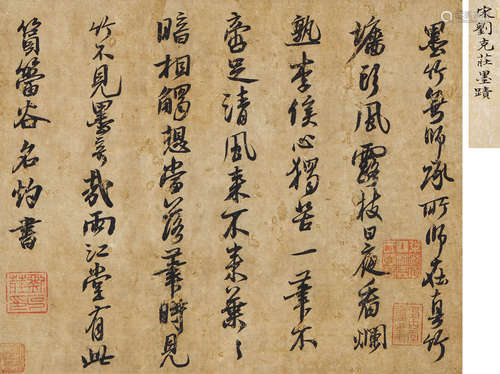 宋劉克莊墨蹟
墨竹無師承所師在真竹
墻頭風露枝日夜看爛
熟李侯心獨苦一筆不
啻足清風來不來葉〻
暗相觸想當落筆時見
竹不見墨奇哉兩江堂有此
篔簹谷 名灼書